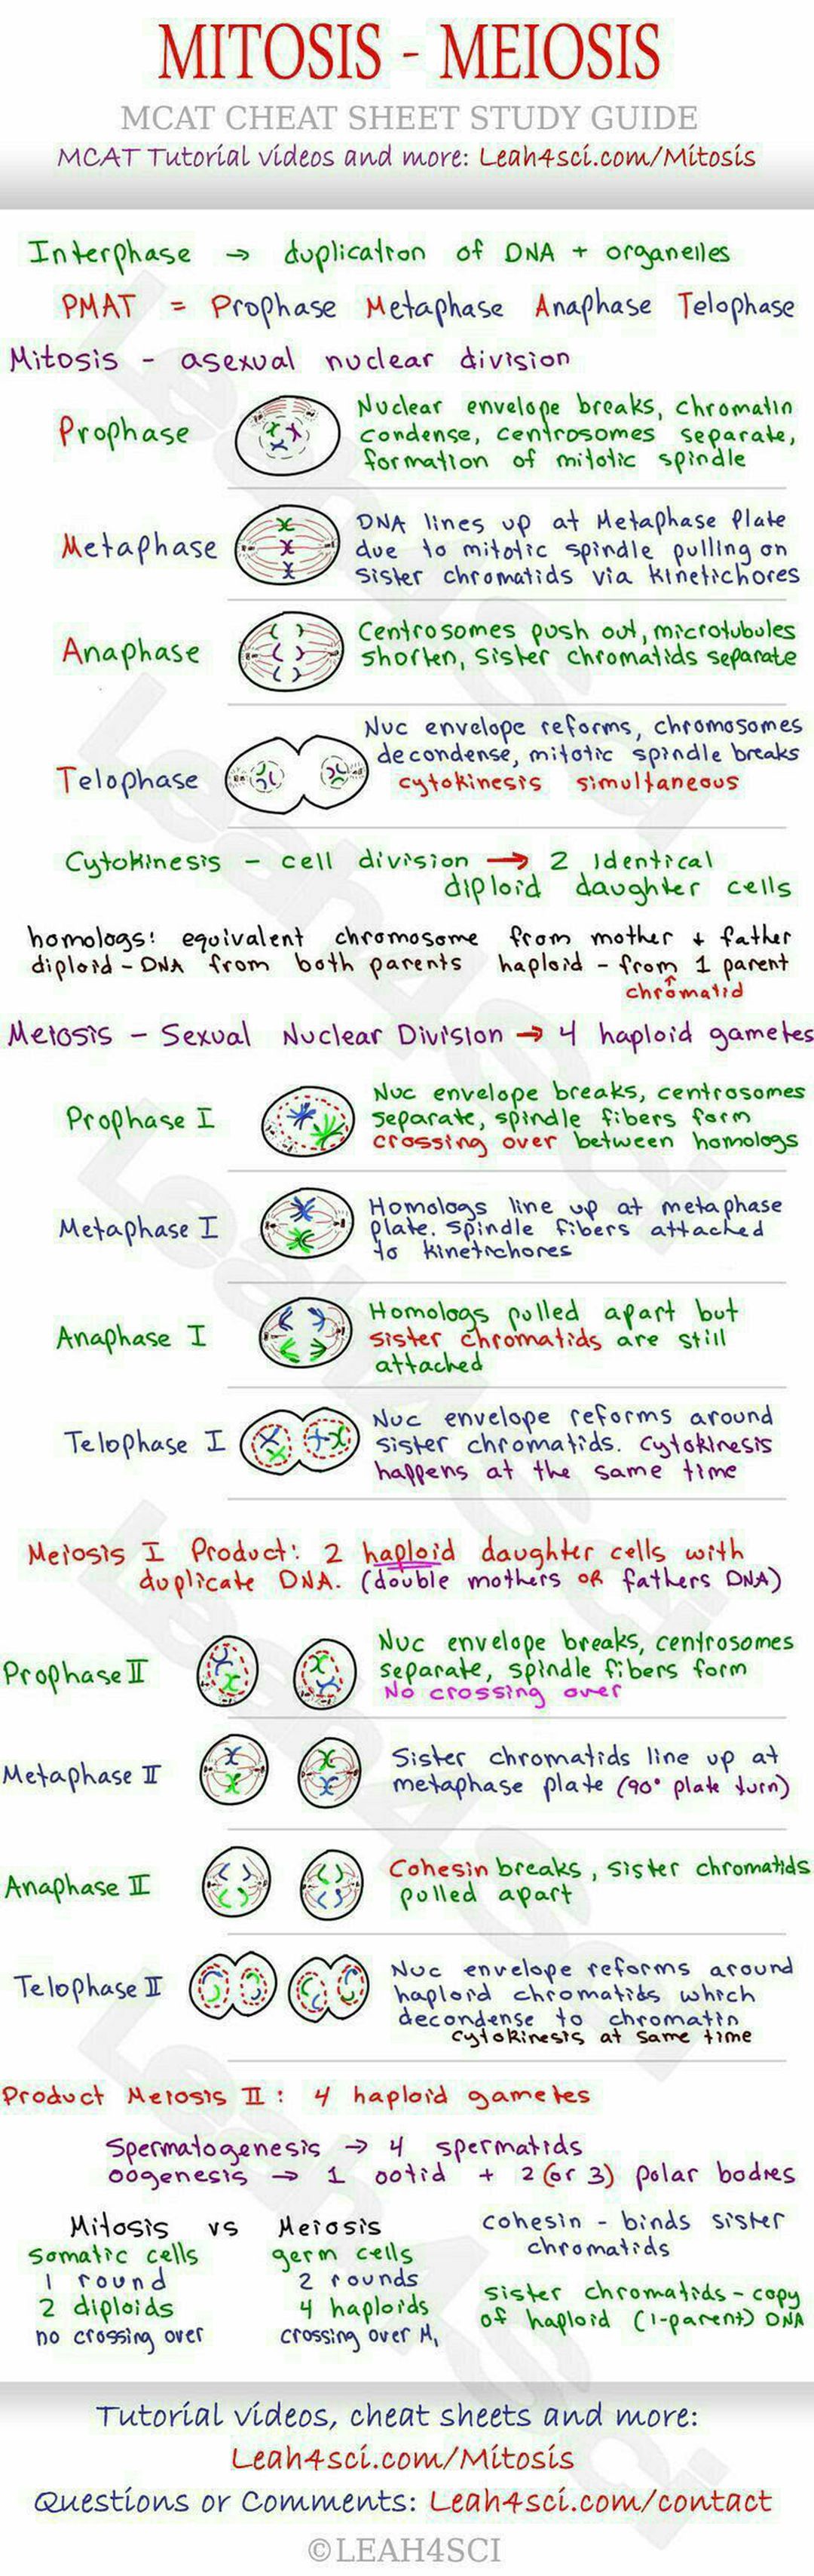 MITOSIS - MEIOSIS
MCAT CHEAT SHEET STUDY GUIDE
MCAT Tutorial videos and more: Leah4sci.com/Mitosis
Interphase → duplication of DNA + organelles
PMAT = Prophase Metaphase Anaphase Telophase
Mitosis - asexual nuclear division
Prophase
Nuclear envelope breaks, chromatin
condense, centrosomes separate,
formation of mitotic spindle
Metaphase
DNA lines up at Metaphase Plate
due to mitotic spindle pulling on
sister chromatids via kinetichores
Anaphase
Centrosomes push out, microtubules
shorten, sister chromatids separate
Telophase
Nuc envelope reforms, chromosomes
decondense, mitotic spindle breaks
cytokinesis simultaneous
Cytokinesis - cell division → 2 identical
diploid daughter cells
homologs: equivalent chromosome from mother + father
diploid - DNA from both parents haploid - from 1 parent
chromatid
Meiosis - Sexual Nuclear Division → 4 haploid gametes
Prophase I
Nuc envelope breaks, centrosomes
separate, spindle fibers form
crossing over between homologs
Metaphase I
Homologs line up at metaphase
plate. Spindle fibers attached
to kinetichores
Anaphase I
Homologs pulled apart but
sister chromatids are still
attached
Telophase I
Nuc envelope reforms around
sister chromatids. Cytokinesis
happens at the same time
Meiosis I Product: 2 haploid daughter cells with
duplicate DNA. (double mothers OR fathers DNA)
Prophase II
Nuc envelope breaks, centrosomes
separate, spindle fibers form
No crossing over
Metaphase II
Sister chromatids line up at
metaphase plate (90° plate turn)
Anaphase II
Cohesin breaks, sister chromatids
pulled apart
Telophase II
Nuc envelope reforms around
haploid chromatids which
decondense to chromatin
cytokinesis at same time
Product Meiosis II: 4 haploid gametes
Spermatogenesis → 4 spermatids
oogenesis → 1 ootid + 2 (or 3) polar bodies
Mitosis vs Meiosis
somatic cells germ cells
1 round 2 rounds
2 diploids 4 haploids
no crossing over crossing over M₁
cohesin - binds sister
chromatids
sister chromatids - copy
of haploid (1-parent) DNA
Tutorial videos, cheat sheets and more:
Leah4sci.com/Mitosis
Questions or Comments: Leah4sci.com/contact
©LEAH4SCI